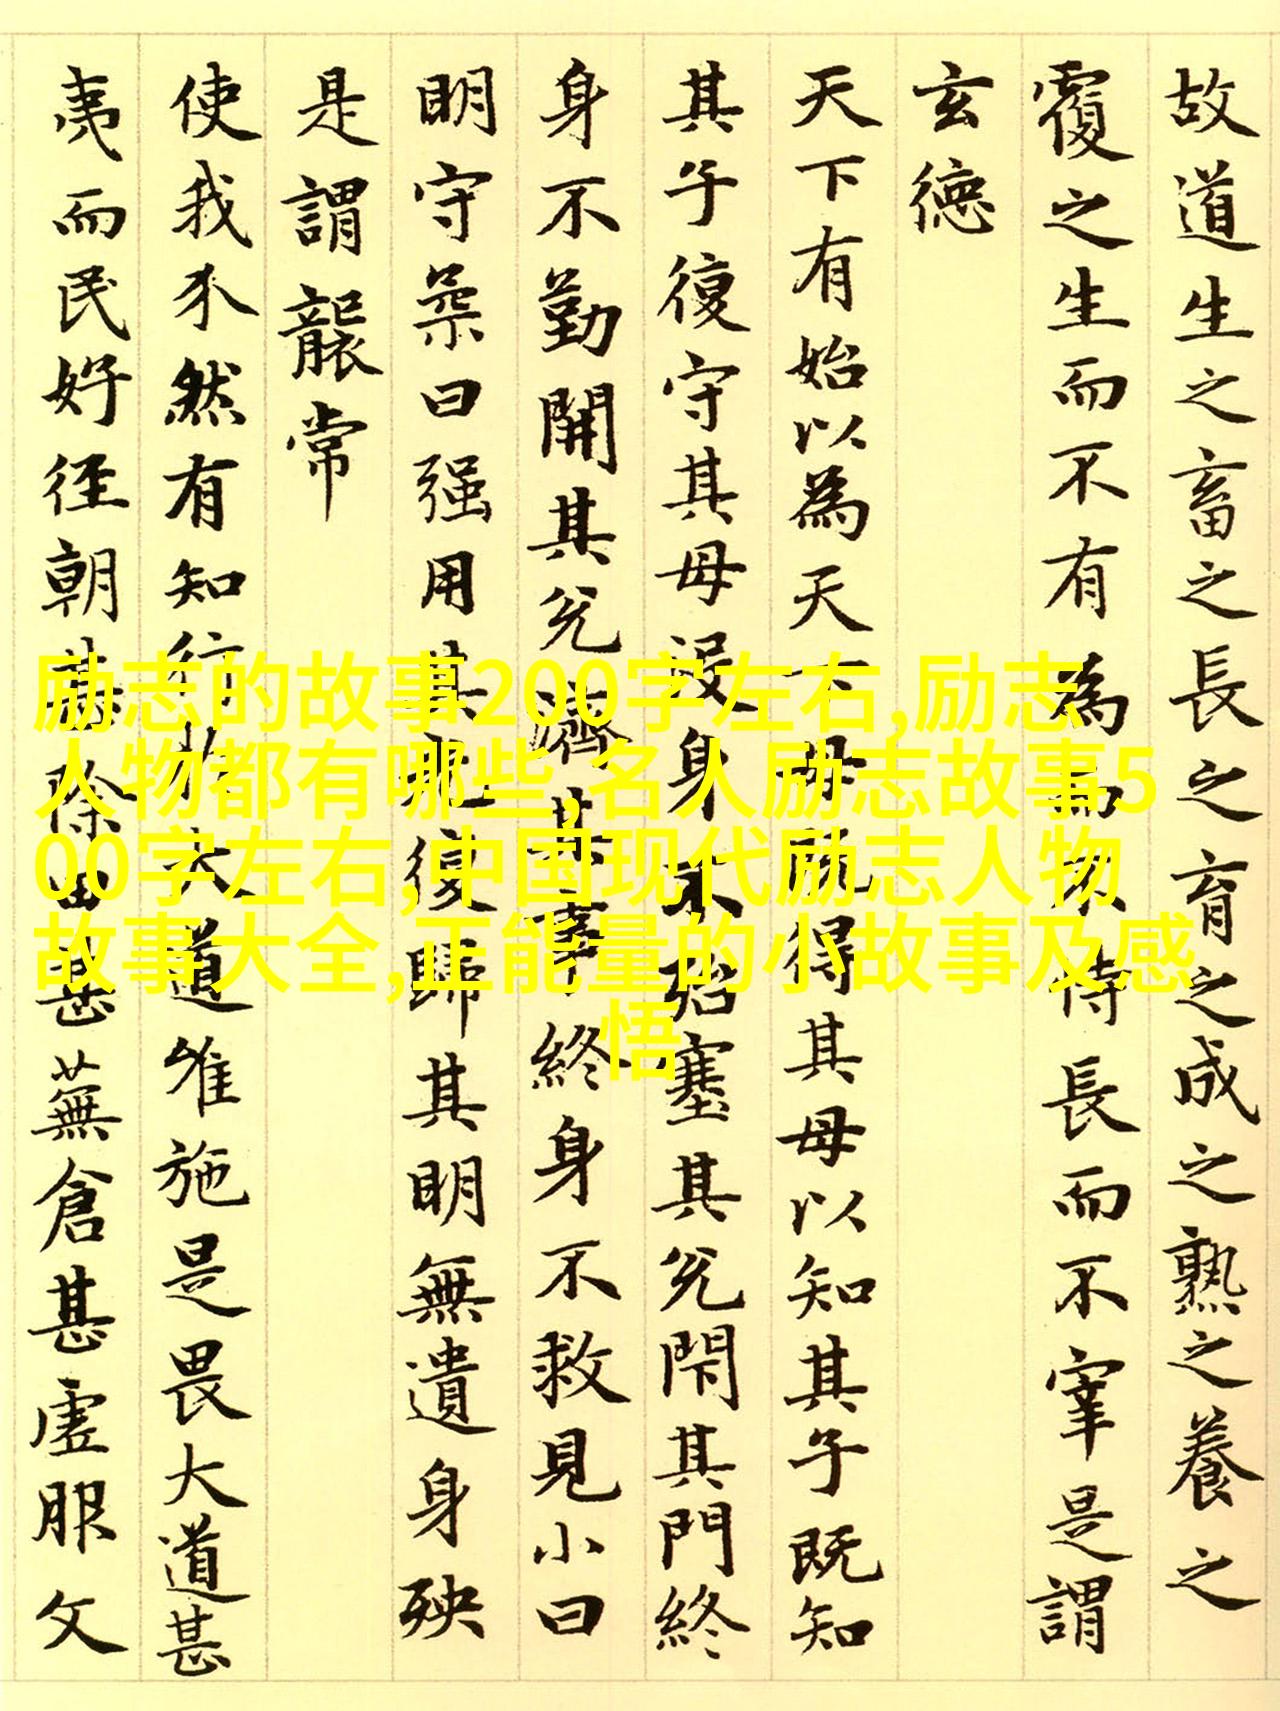 故道生之畜之長之育之成之熟之養之
覆之生而不有為而不恃長而不宰是謂
玄德
天下有始以為天下母既得其母以知其子既知
其子復守其母沒身不殆塞其兌閉其門終
身不勤開其兌濟其事終身不救見小曰
明守柔曰强用其光復歸其明無遺身殃
是謂襲常
使我介然有知行於大道唯施是畏大道甚
夷而民好徑朝甚除田甚蕪倉甚虛服文
励志的故事200字左右,励志
人物都有哪些,名人励志故事5
00字左右,中国现代励志人物
故事大全,正能量的小故事及感
悟